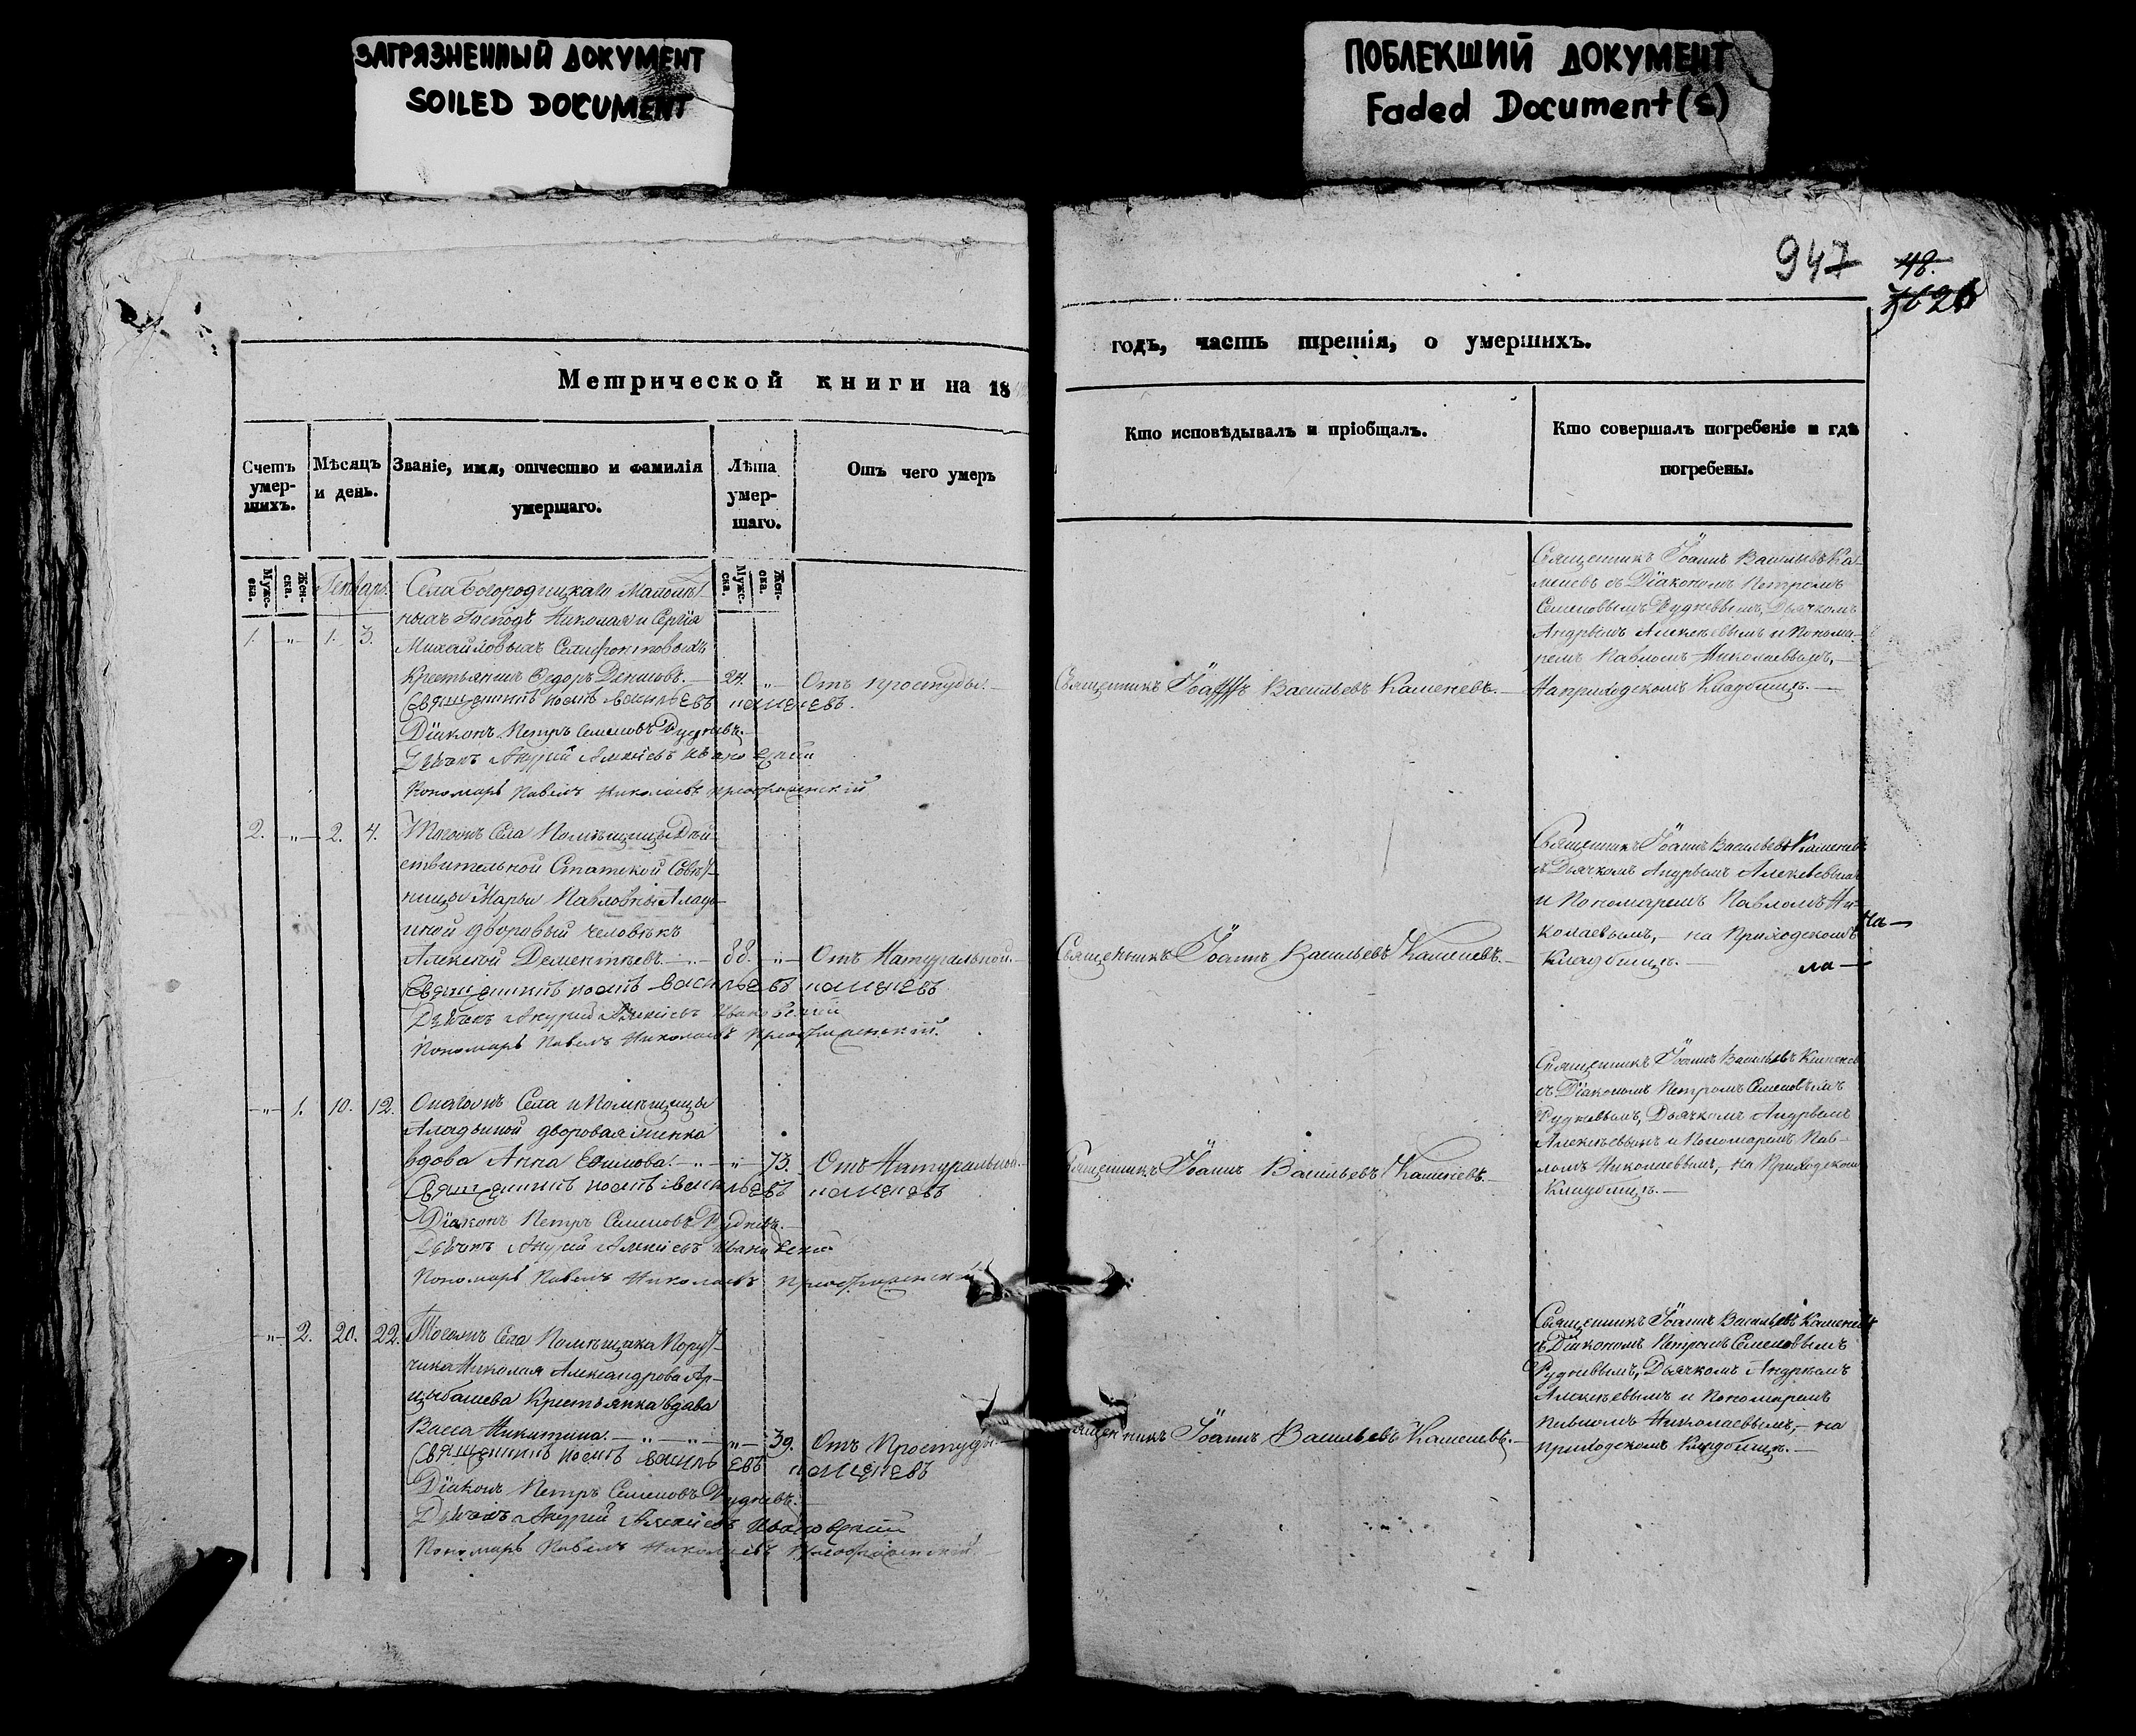 ЗАГРЯЗНЕННЫЙ ДОКУМЕНТ
SOILED DOCUMENT
ПОБЛЕКШИЙ ДОКУМЕНТ
Faded Document(s)
947
48.
Метрической книги на 18
годъ, часть третія, о умершихъ.
Счетъ умер-шихъ.
Мѣсяцъ и день.
Званіе, имя, отчество и фамилія умершаго.
Лѣта умер-шаго.
Отъ чего умеръ
Кто исповѣдывалъ и пріобщалъ.
Кто совершалъ погребеніе и гдѣ погребены.
Мужс-ка.
Жен-ска.
Генварь.
Мужс-ка.
Жен-ска.
Села Богородицкаго Малолѣт-
ныхъ Господъ Николая и Сергія
1. „ 1. 3.
Михайловыхъ Селифонтовыхъ
Крестьянинъ Ѳедоръ Денисовъ. — 24. „ — Отъ простуды. —
Священникъ Іоаннъ Васильевъ Каменевъ.
Діаконъ Петръ Семеновъ Рудневъ.
Дьячокъ Андрей Алексѣевъ Ивановскій
Пономарь Павелъ Николаевъ Преображенскій
Священникъ Іоаннъ Васильевъ Каменевъ. —
Священникъ Іоаннъ Васильевъ Ка-
меневъ съ Діакономъ Петромъ
Семеновымъ Рудневымъ, Дьячкомъ
Андреемъ Алексѣевымъ и Понома-
ремъ Павломъ Николаевымъ, —
На приходскомъ Кладбищѣ. —
2. „ 2. 4. Тогожъ Села Помѣщицы Дѣй-
ствительной Статской Совѣт-
ницы Марьи Павловны Алады-
иной дворовый человѣкъ
Алексѣй Дементьевъ. — 88. „ — Отъ Натуральной. —
Священникъ Іоаннъ Васильевъ Каменевъ
Дьячокъ Андрей Алексѣевъ Ивановскій
Пономарь Павелъ Николаевъ Преображенскій.
Священникъ Іоаннъ Васильевъ Каменевъ. —
Священникъ Іоаннъ Васильевъ Каменевъ
съ Дьячкомъ Андреемъ Алексѣевымъ
и Пономаремъ Павломъ Ни-
колаевымъ, — на Приходскомъ
Кладбищѣ. —
На —
ла —
„ 1. 10. 12. Онагожъ Села и Помѣщицы
Аладьиной дворовая женка
вдова Анна Ефимова. — „ — 73. Отъ Натуральной. —
Священникъ Іоаннъ Васильевъ Каменевъ
Діаконъ Петръ Семеновъ Рудневъ. —
Дьячокъ Андрей Алексѣевъ Ивановскій
Пономарь Павелъ Николаевъ Преображенскій
Священникъ Іоаннъ Васильевъ Каменевъ. —
Священникъ Іоаннъ Васильевъ Каменевъ
съ Діакономъ Петромъ Семеновымъ
Рудневымъ, Дьячкомъ Андреемъ
Алексѣевымъ и Пономаремъ Пав-
ломъ Николаевымъ, — на Приходскомъ
Кладбищѣ. —
„ 2. 20. 22. Тогожъ Села Помѣщика Пору-
чика Николая Александрова Ар-
цыбашева Крестьянка вдова
Васса Никитина. — „ — „ — 39. Отъ Простуды.
Священникъ Іоаннъ Васильевъ Каменевъ
Діаконъ Петръ Семеновъ Рудневъ. —
Дьячокъ Андрей Алексѣевъ Ивановскій
Пономарь Павелъ Николаевъ Преображенскій. —
Священникъ Іоаннъ Васильевъ Каменевъ. —
Священникъ Іоаннъ Васильевъ Каменевъ
съ Діакономъ Петромъ Семеновымъ
Рудневымъ, Дьячкомъ Андреемъ
Алексѣевымъ и Пономаремъ
Павломъ Николаевымъ, — на
приходскомъ Кладбищѣ. —